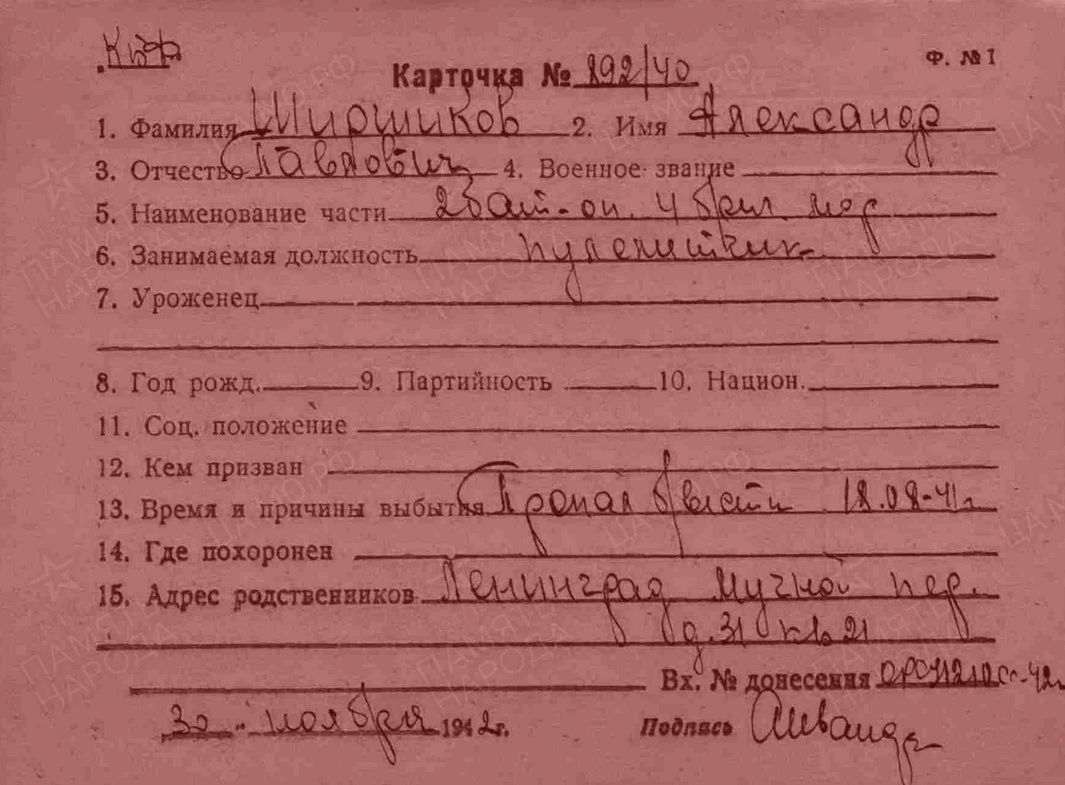 КБФ
Ф. №1
Карточка № 892/40
1. Фамилия Ширшиков 2. Имя Александр
3. Отчество Павлович 4. Военное звание
5. Наименование части 2 бат-он. 4 бриг. мор
6. Занимаемая должность пулеметчик
7. Уроженец
8. Год рожд. 9. Партийность 10. Национ.
11. Соц. положение
12. Кем призван
13. Время и причины выбытия Пропал б/вести 18.08-41г
14. Где похоронен
15. Адрес родственников Ленинград Мучной пер.
д. 31 кв 21
Вх. № донесения -42г
30 " ноября 1942г.
Подпись